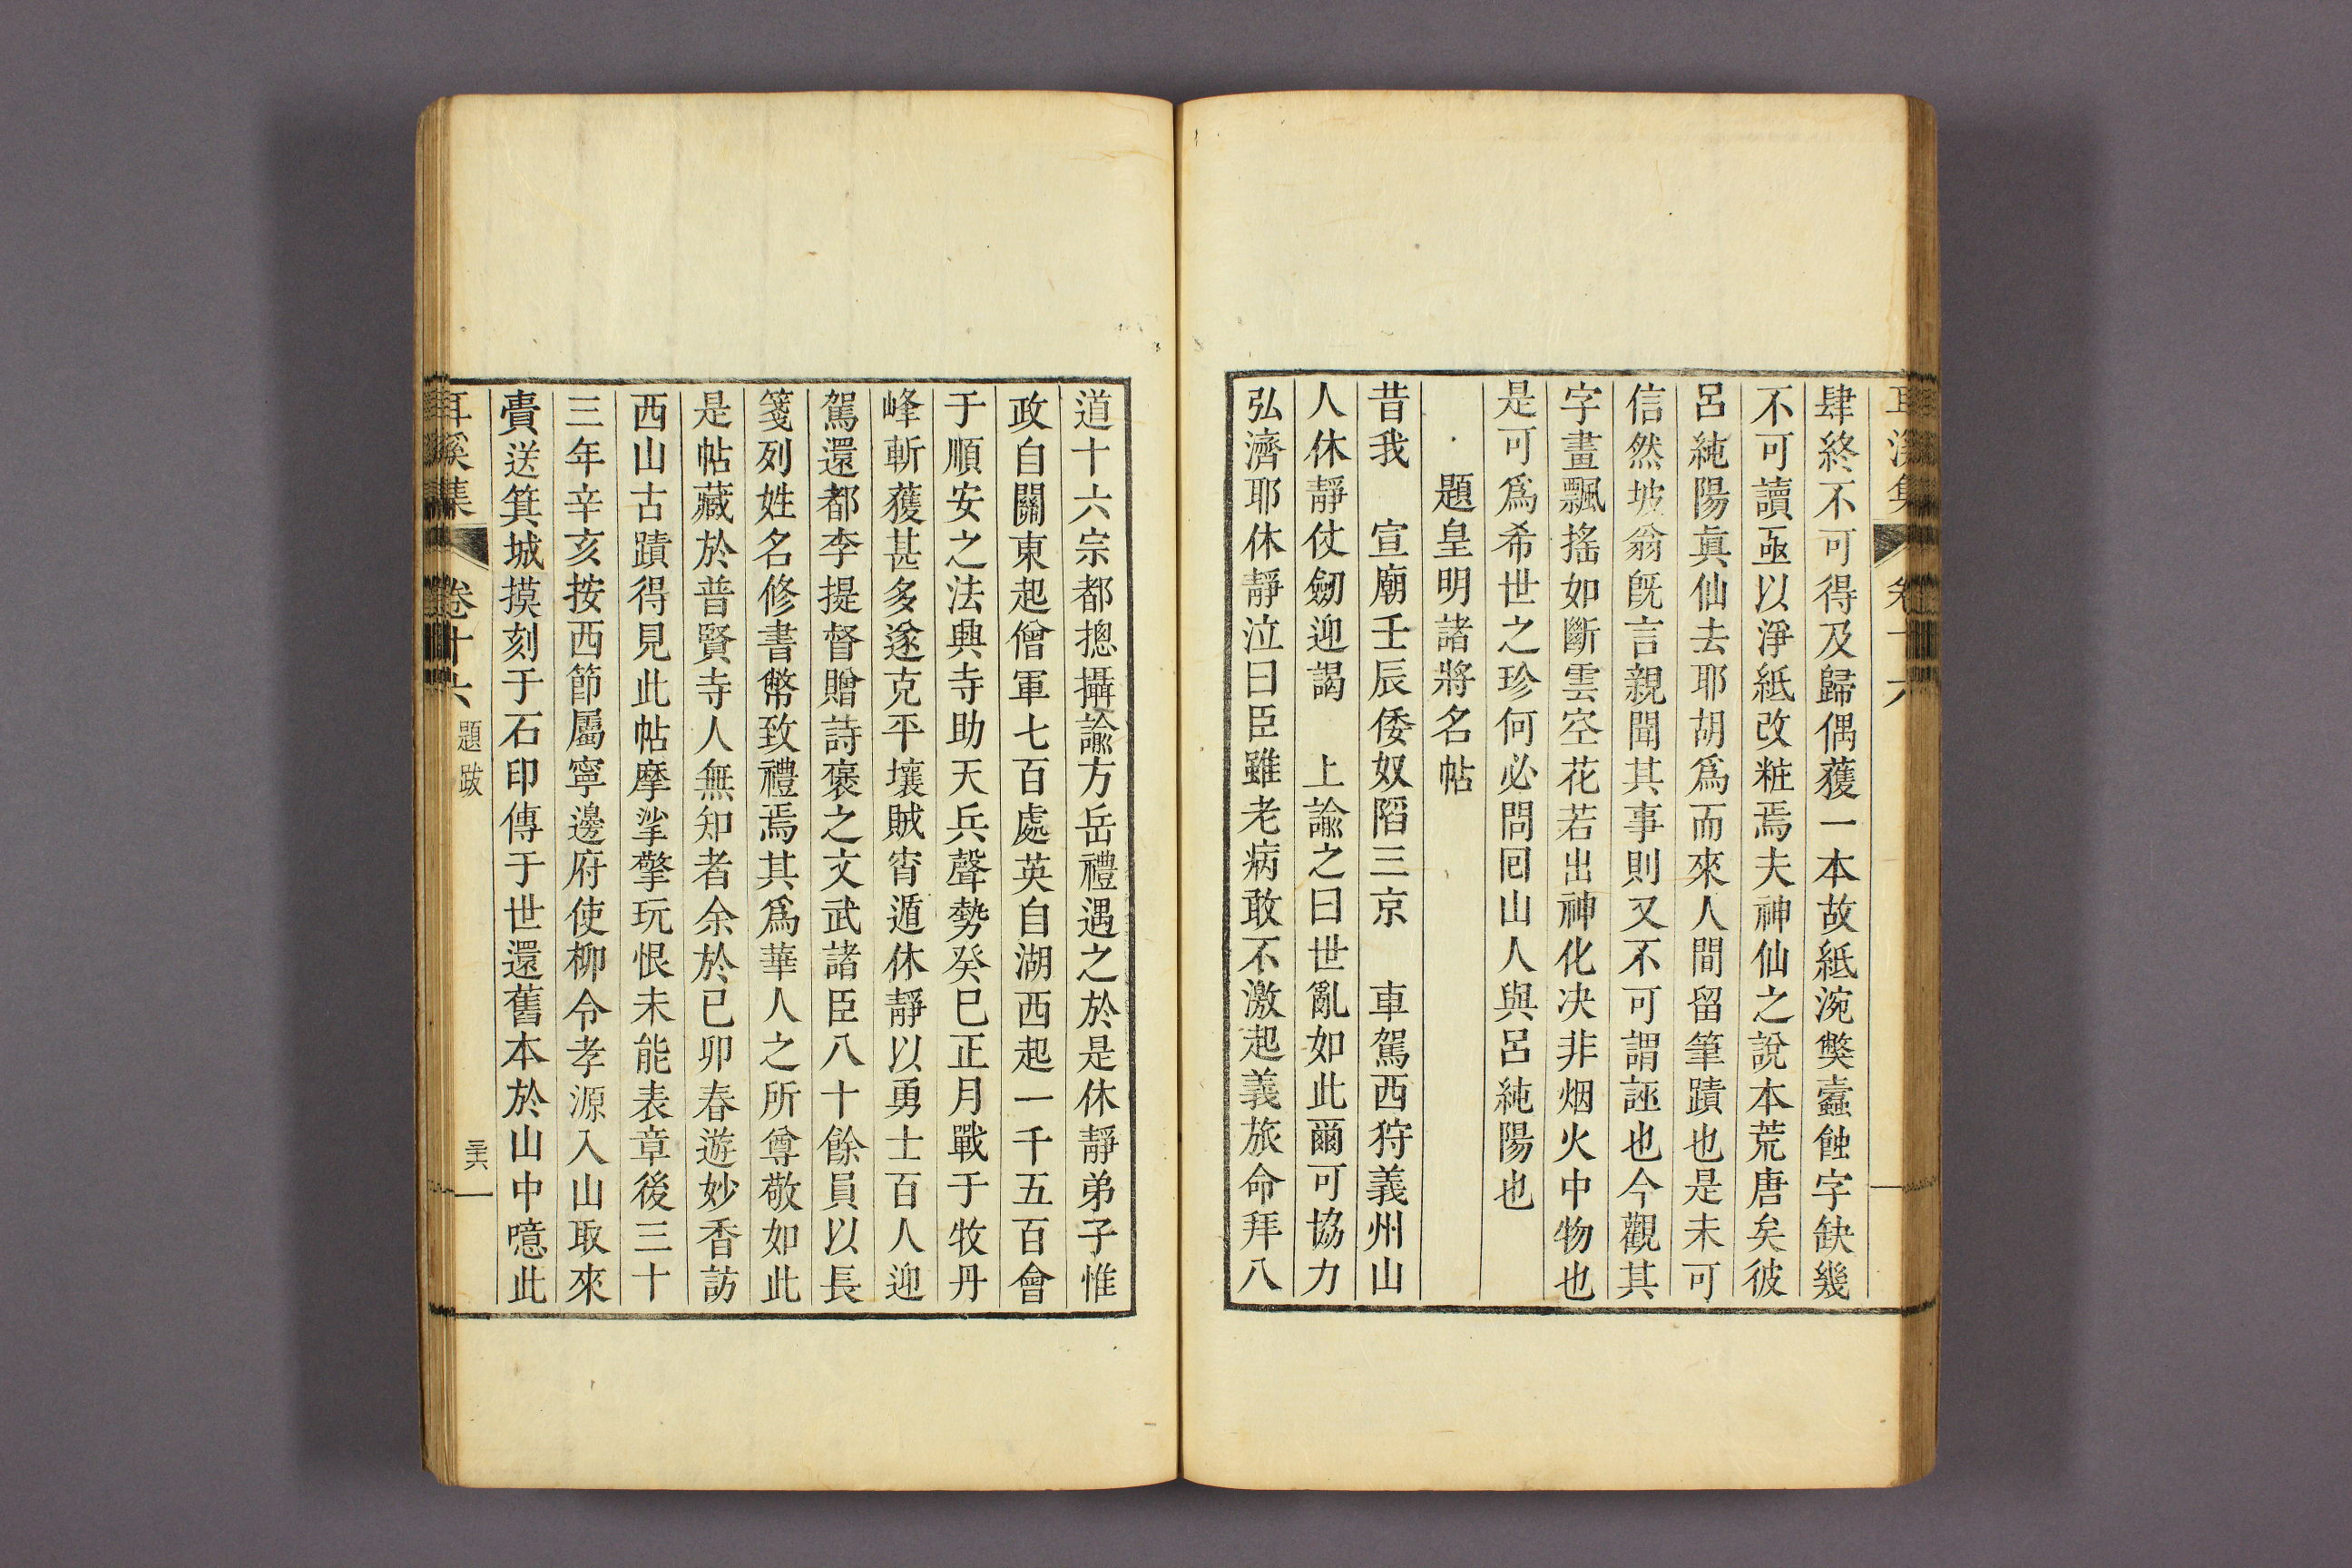 耳溪集 卷十六
肆終不可得及歸偶獲一本故紙涴獘蠹蝕字缺幾
不可讀亟以淨紙改粧焉夫神仙之說本荒唐矣彼
呂純陽眞仙去耶胡爲而來人間留筆蹟也是未可
信然坡翁旣言親聞其事則又不可謂誣也今觀其
字畫飄搖如斷雲空花若出神化决非烟火中物也
是可爲希世之珍何必問囘山人與呂純陽也
題皇明諸將名帖
昔我 宣廟壬辰倭奴陷三京 車駕西狩義州山
人休靜仗劒迎謁 上諭之曰世亂如此爾可協力
弘濟耶休靜泣曰臣雖老病敢不激起義旅命拜八
道十六宗都摠攝諭方岳禮遇之於是休靜弟子惟
政自關東起僧軍七百處英自湖西起一千五百會
于順安之法興寺助天兵聲勢癸巳正月戰于牧丹
峰斬獲甚多遂克平壤賊宵遁休靜以勇士百人迎
駕還都李提督贈詩褒之文武諸臣八十餘員以長
箋列姓名修書幣致禮焉其爲華人之所尊敬如此
是帖藏於普賢寺人無知者余於己卯春遊妙香訪
西山古蹟得見此帖摩挲擎玩恨未能表章後三十
三年辛亥按西節屬寧邊府使柳令孝源入山取來
賷送箕城摸刻于石印傳于世還舊本於山中噫此
耳溪集 卷十六 題跋 三六